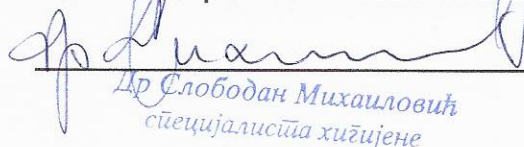 Др Слободан Михаиловић
специјалиста хигијене